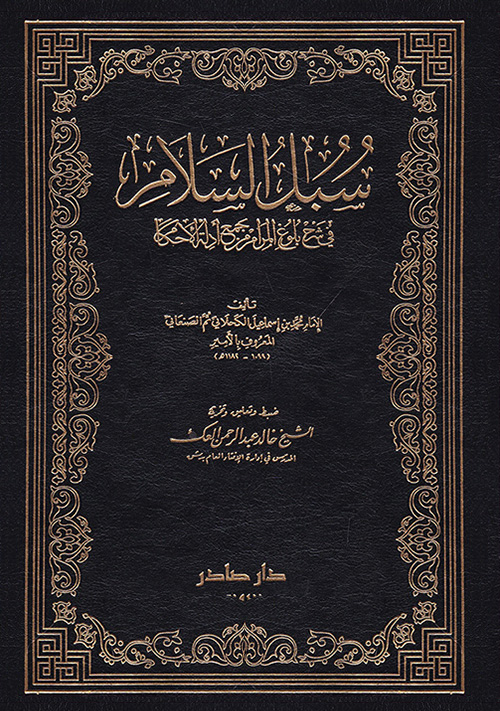 سُبُلُ السَّلَامِ
في شرح بلوغ المرام من جمع أدلة الأحكام
تأليف
الإمام محمد بن إسماعيل الكحلاني ثم الصنعاني
المعروف بالأمير
(١٠٩٩ - ١١٨٢ هـ)
ضبط وتعليق وتخريج
الشيخ خالد عبد الرحمن العك
المدرس في إدارة الإفتاء العام بدمشق
دار صادر